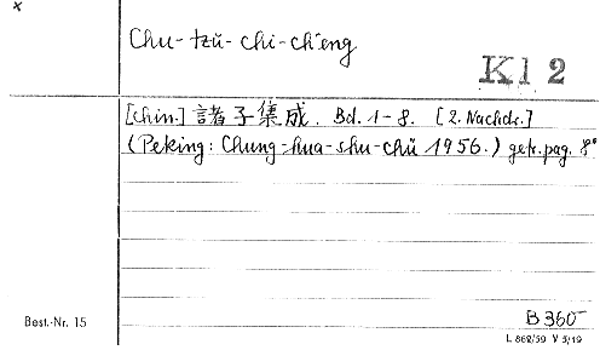 x
Chu-tzŭ-chi-ch'eng
K1 2
[chin.] 諸子集成. Bd. 1-8. [2. Nachdr.]
(Peking: Chung-hua-shu-chü 1956.) getr. pag. 8°
Best.-Nr. 15
B 360
L 862/59 V 5/19